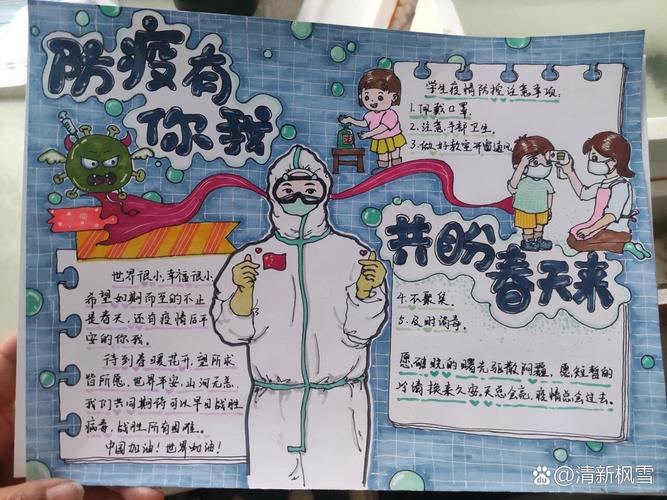 防疫有
你我
学生疫情防控注意事项:
1.佩戴口罩。
2.注意手部卫生。
3.做好教室开窗通风
共盼
春天来
世界很小,幸福很小
希望如期而至的不止
是春天,还有疫情后平
安的你我。
待到春暖花开,望所求
皆所愿,世界平安,山河无恙,
我们共同期待可以早日战胜
病毒,战胜所有困难。
中国加油!世界加油!
4.不聚集。
5.及时消毒。
愿破晓的曙光驱散阴霾,愿短暂的
冷清换来久安。天总会亮,疫情总会过去。
百度@清新枫雪